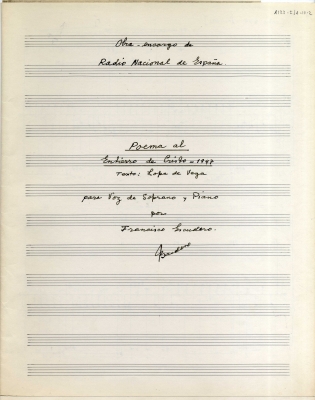 Obra-encargo de
Radio Nacional de España.
Poema al
Entierro de Cristo - 1947
Texto: Lope de Vega
para Voz de Soprano y Piano
por
Francisco Escudero.
Escudero